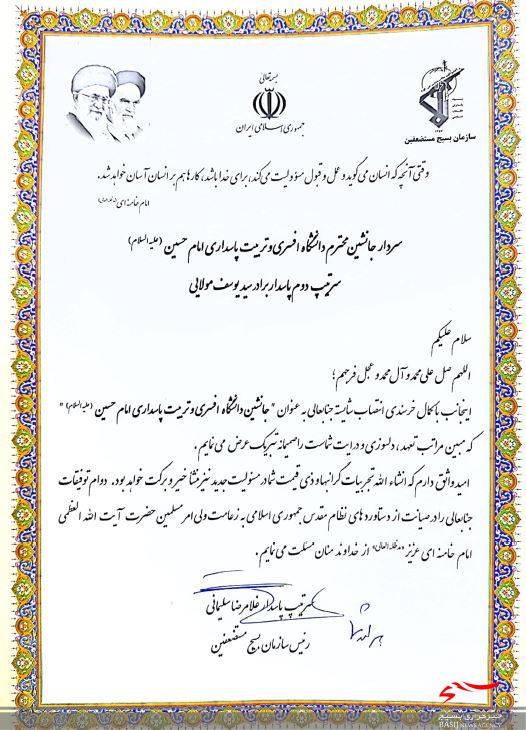 بسمه تعالی
جمهوری اسلامی ایران
سازمان بسیج مستضعفین
وقتی آنچه که انسان می گوید و عمل و قبول مسؤولیت می کند، برای خدا باشد، کارها هم بر انسان آسان خواهد شد.
امام خامنه ای
سردار جانشین محترم دانشگاه افسری و تربیت پاسداری امام حسین (علیه السلام)
سرتیپ دوم پاسدار برادر سید یوسف مولایی
سلام علیکم
اللهم صل علی محمد و آل محمد و عجل فرجهم؛
اینجانب با کمال خرسندی انتصاب شایسته جنابعالی به عنوان "جانشین دانشگاه افسری و تربیت پاسداری امام حسین (علیه السلام)"
که مبین مراتب تعهد، دلسوزی و درایت شماست را صمیمانه تبریک عرض می نمایم.
امید واثق دارم که انشاء الله تجربیات گرانبها و ذی قیمت شما در مسئولیت جدید نیز منشأ خیر و برکت خواهد بود. دوام توفیقات
جنابعالی را در صیانت از دستاوردهای نظام مقدس جمهوری اسلامی به زعامت ولی امر مسلمین حضرت آیت الله العظمی
امام خامنه ای عزیز "مدظله العالی" از خداوند منان مسئلت می نمایم.
سرتیپ پاسدار غلامرضا سلیمانی
رئیس سازمان بسیج مستضعفین
خبرگزاری بسیج
BASIJ NEWS AGENCY